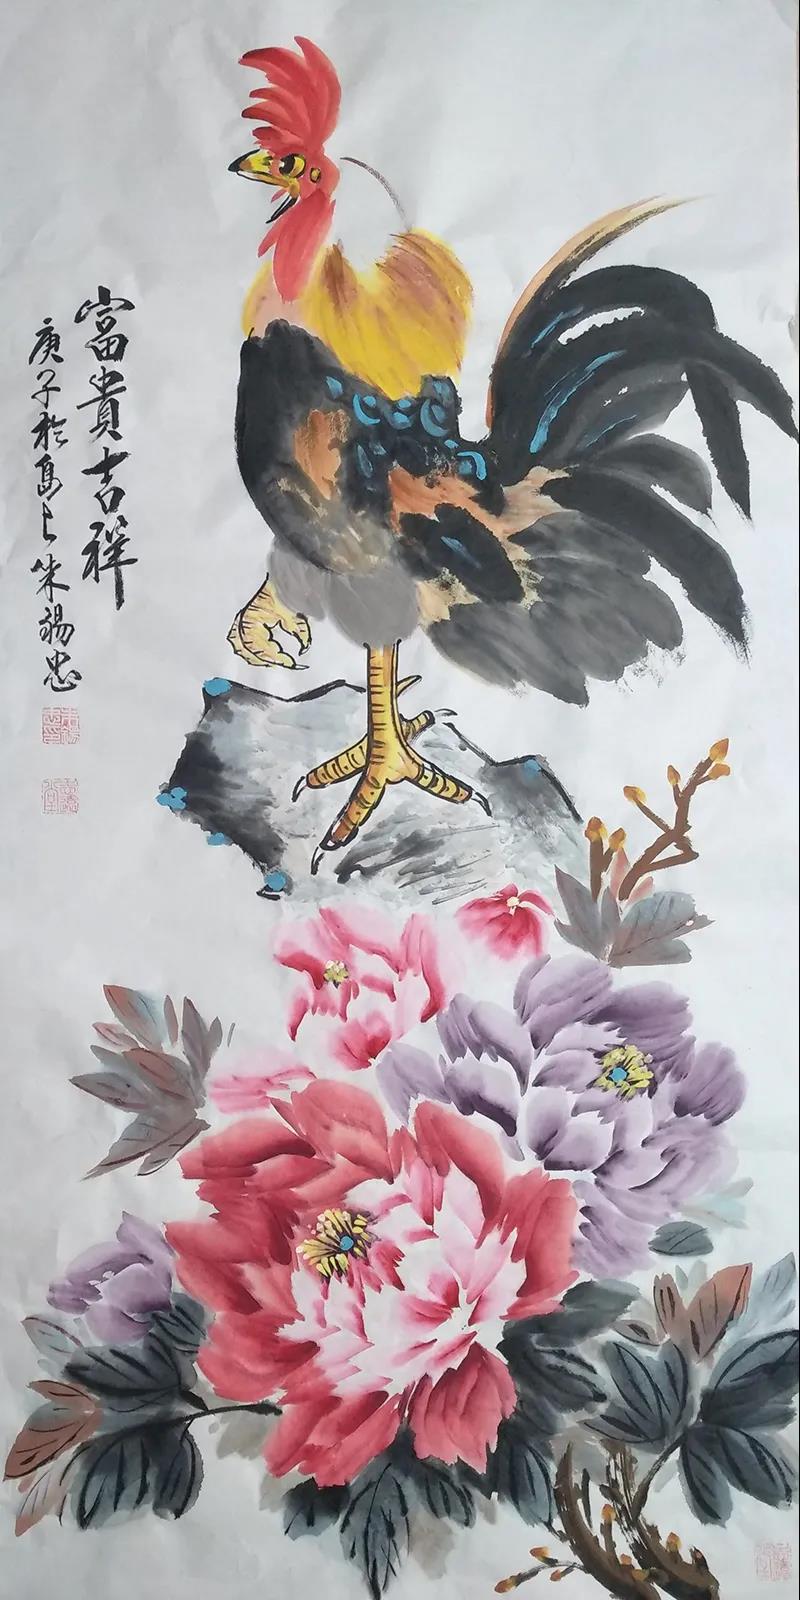 富貴吉祥
庚子於島上朱錫忠